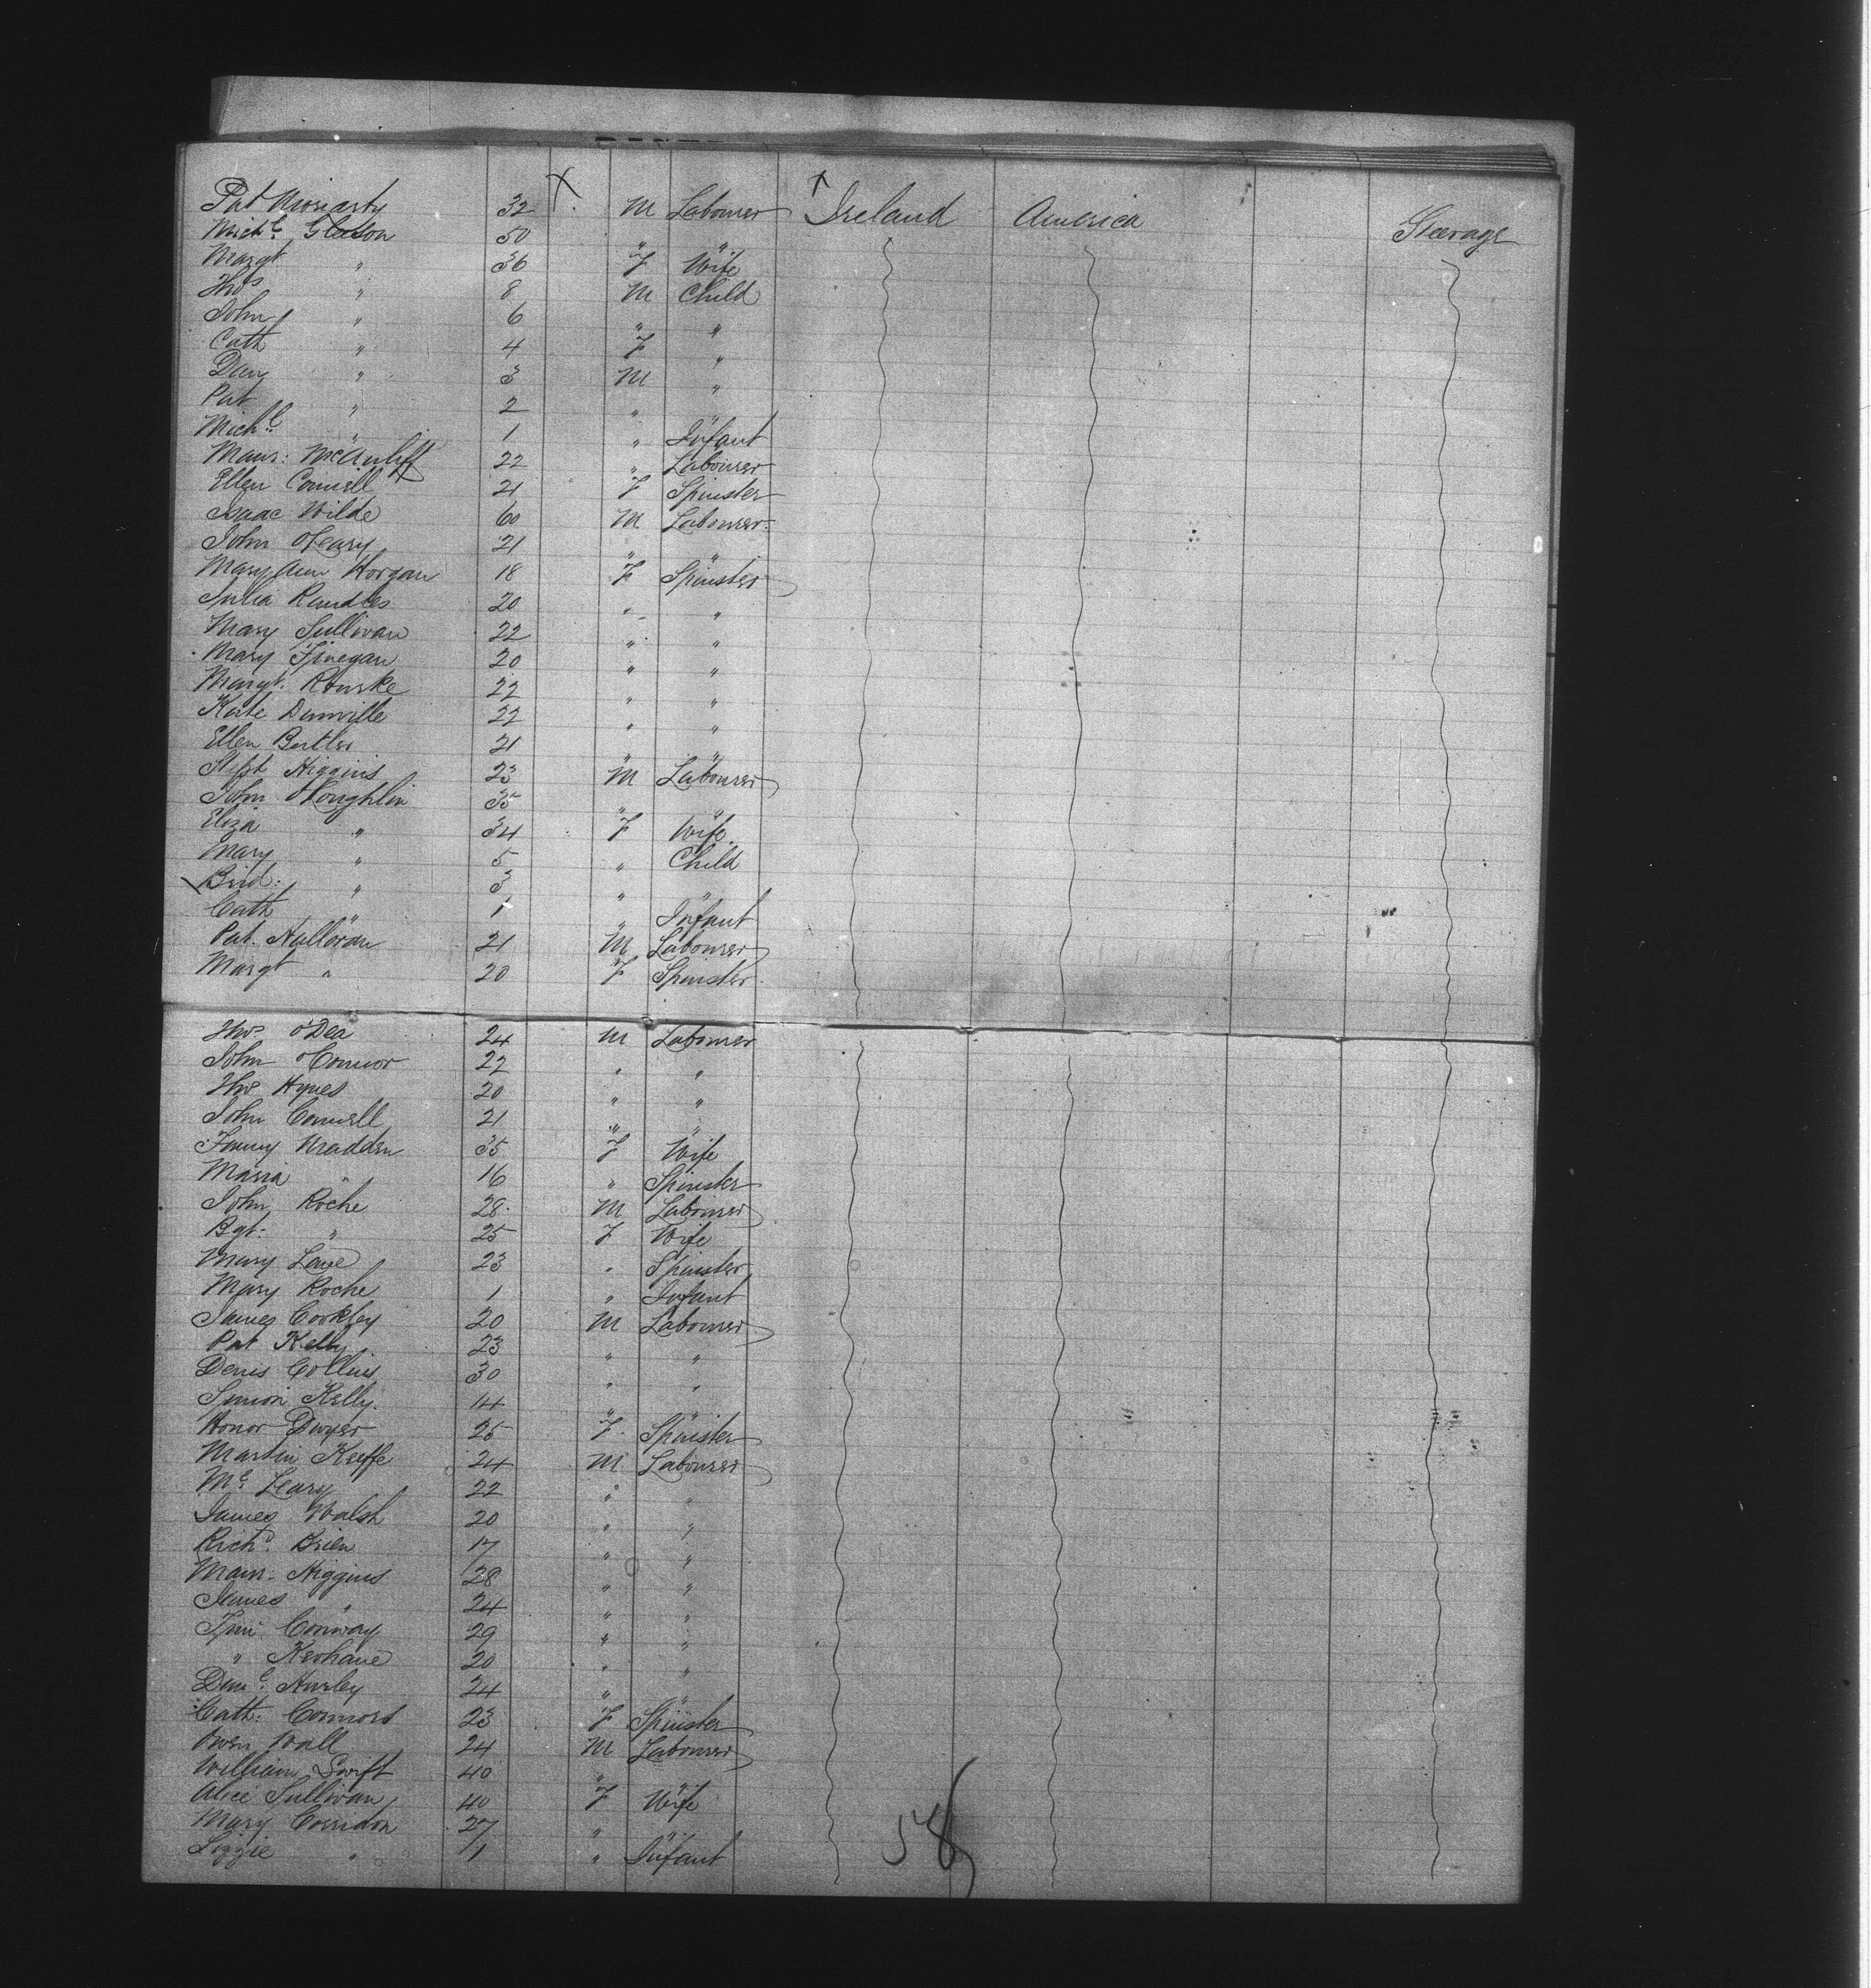 Pat Moriarty 32 M Labourer Ireland America Steerage
Mich.l Gleeson 50 " "
Margt " 36 F Wife
Thos " 8 M Child
John " 6 " "
Cath " 4 F "
Dan " 3 M "
Pat " 2 " "
Mich.l " 1 " Infant
Maur: McAuliff 22 " Labourer
Ellen Connell 21 F Spinster
Isaac Wilde 60 M Labourer
John O'Leary 21 " "
Mary Ann Horgan 18 F Spinster
Julia Randles 20 " "
Mary Sullivan 22 " "
Mary Finegan 20 " "
Margt. Rourke 22 " "
Kate Dunville 22 " "
Ellen Butler 21 " "
Steph Higgins 23 M Labourer
John O'Loughlin 35 " "
Eliza " 34 F Wife
Mary " 5 " Child
Brid: " 3 " "
Cath " 1 " Infant
Pat. Halloran 21 M Labourer
Margt " 20 F Spinster
Thos O'Dea 24 M Labourer
John O'Connor 22 " "
Thos Hynes 20 " "
John Connell 21 " "
Fanny Madden 35 F Wife
Maria " 16 " Spinster
John Roche 28 M Labourer
Bgt: " 25 F Wife
Mary Lane 23 " Spinster
Mary Roche 1 " Infant
James Cookley 20 M Labourer
Pat Kelly 23 " "
Denis Collins 30 " "
Simon Kelly 14 " "
Honor Dwyer 25 F Spinster
Martin Keeffe 24 M Labourer
Mc Leary 22 " "
James Walsh 20 " "
Richd. Brien 17 " "
Maur: Higgins 28 " "
James " 24 " "
Tim Conway 29 " "
" Keohane 20 " "
Danl. Hurley 24 " "
Cath: Connors 23 F Spinster
Owen Wall 24 M Labourer
William Swift 40 " "
Alice Sullivan 40 F Wife
Mary Corridon 27 " "
Lizzie " 1 " Infant
58